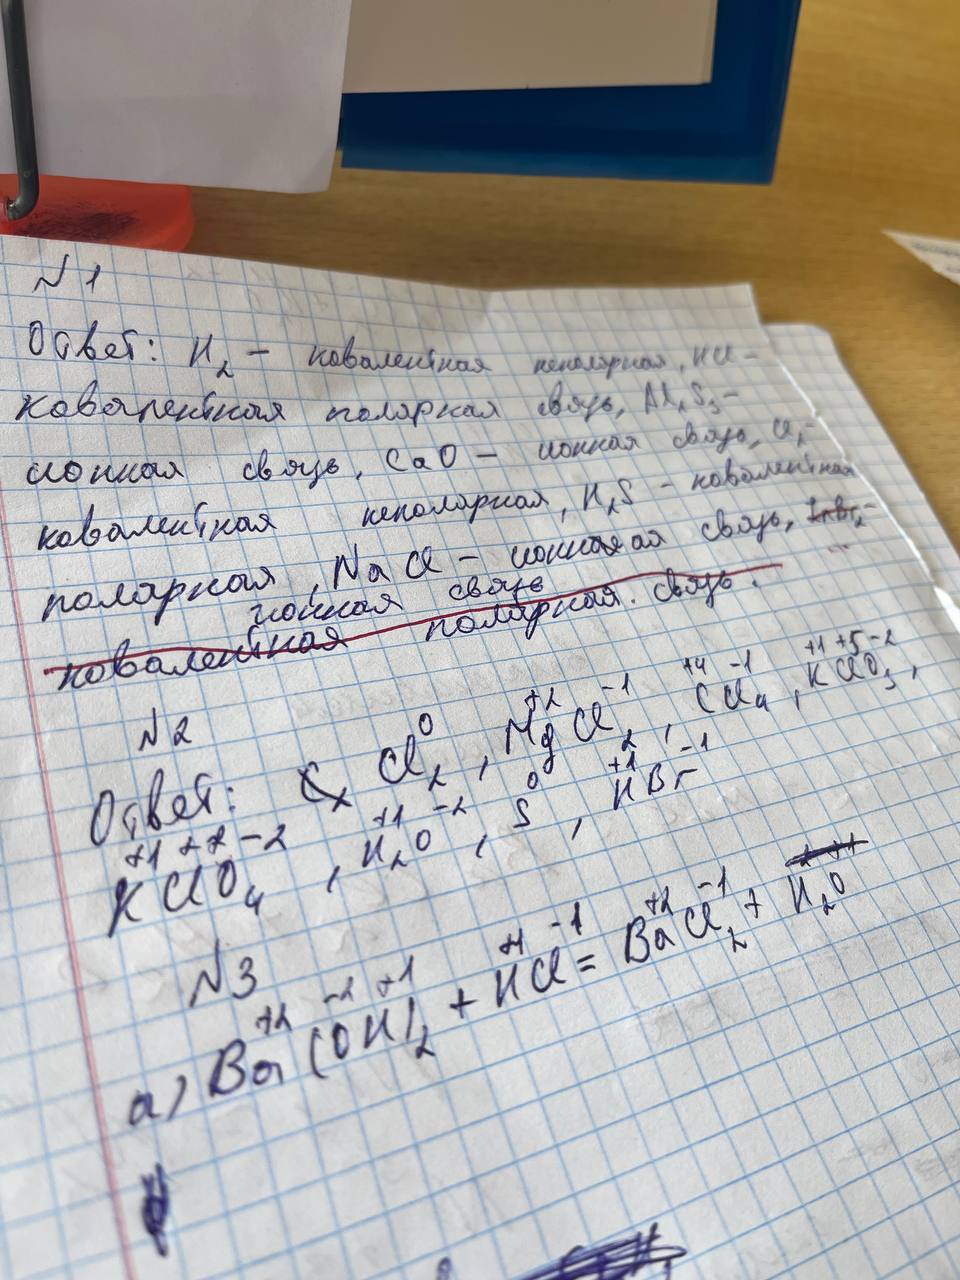 N1
Ответ: H2 - ковалентная неполярная, HCl -
ковалентная полярная связь, Al2S3 -
ионная связь, CaO - ионная связь, Cl2 -
ковалентная неполярная, H2S - ковалентная
полярная, NaCl - ионная связь,
ионная связь
ковалентная полярная связь.
N2
Ответ: Cl2 0, Mg+2 Cl2 -1, C+4 Cl4 -1, K+1 Cl+5 O3 -2,
K+1 Cl+7 O4 -2, H2 +1 O-2, S 0, H+1 Br-1
N3
а) Ba+2 (O-2 H+1)2 + H+1 Cl-1 = Ba+2 Cl2 -1 + H2O